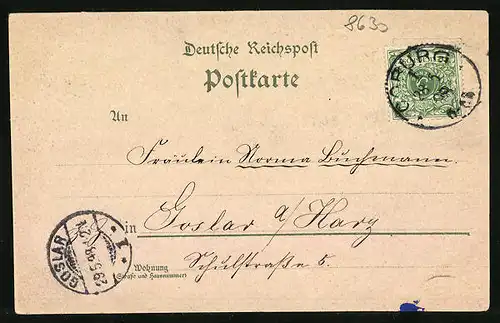 8630
Deutsche Reichspost
Postkarte
COBURG
An
Fräulein Norma Buchmann.
in Goslar a/Harz
GOSLAR
* 1 *
Wohnung
(Straße und Hausnummer)
Schulstraße 5.